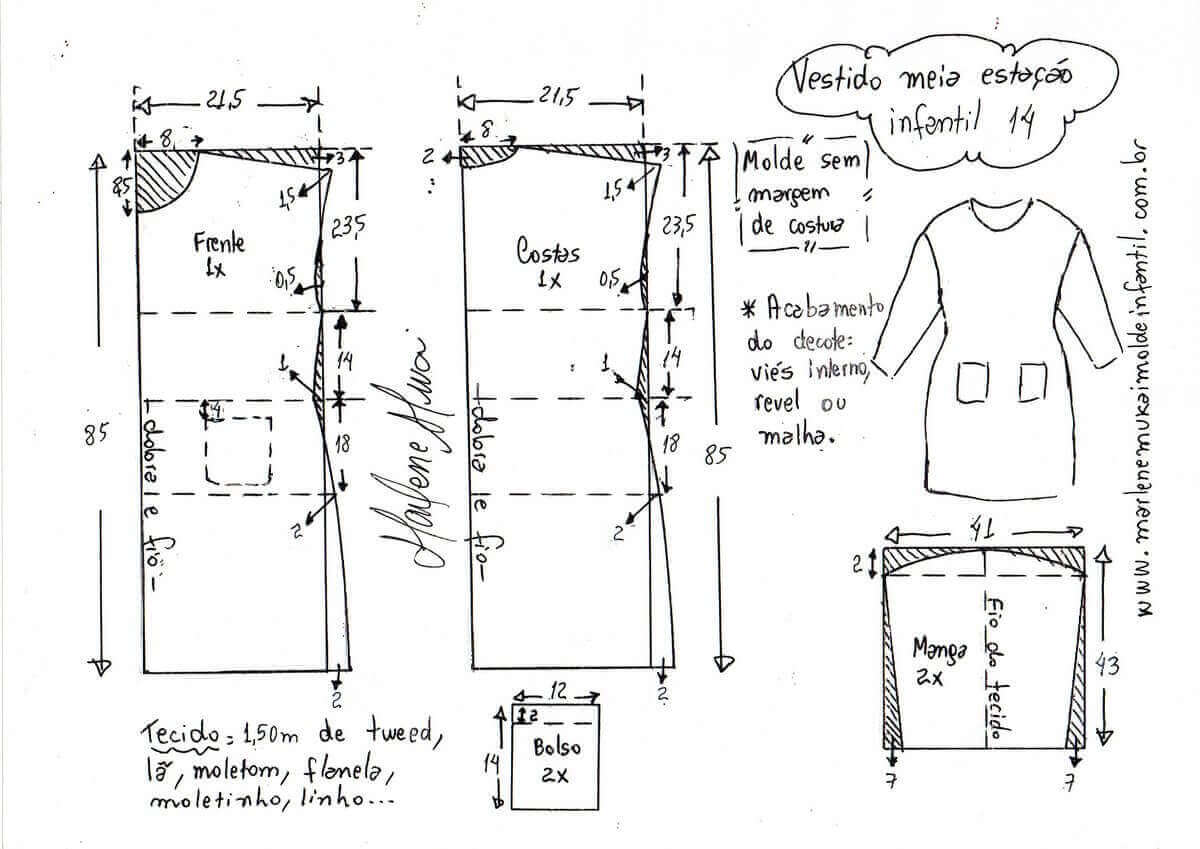 Vestido meia estação
infantil 14
www.marlenemukaimoldeinfantil.com.br
21,5
8
3
8,5
1,5
23,5
Frente
1x
0,5
14
1
4
18
85
2
dobra e fio
2
21,5
8
2
3
1,5
23,5
Costas
1x
0,5
14
1
18
85
2
dobra e fio
2
Molde sem
margem
de costura
* Acabamento
do decote:
viés interno,
revel ou
malha.
41
2
Manga
2x
Fio do tecido
43
7
7
12
2
14
Bolso
2x
Tecido = 1,50m de tweed,
lã, moletom, flanela,
moletinho, linho...